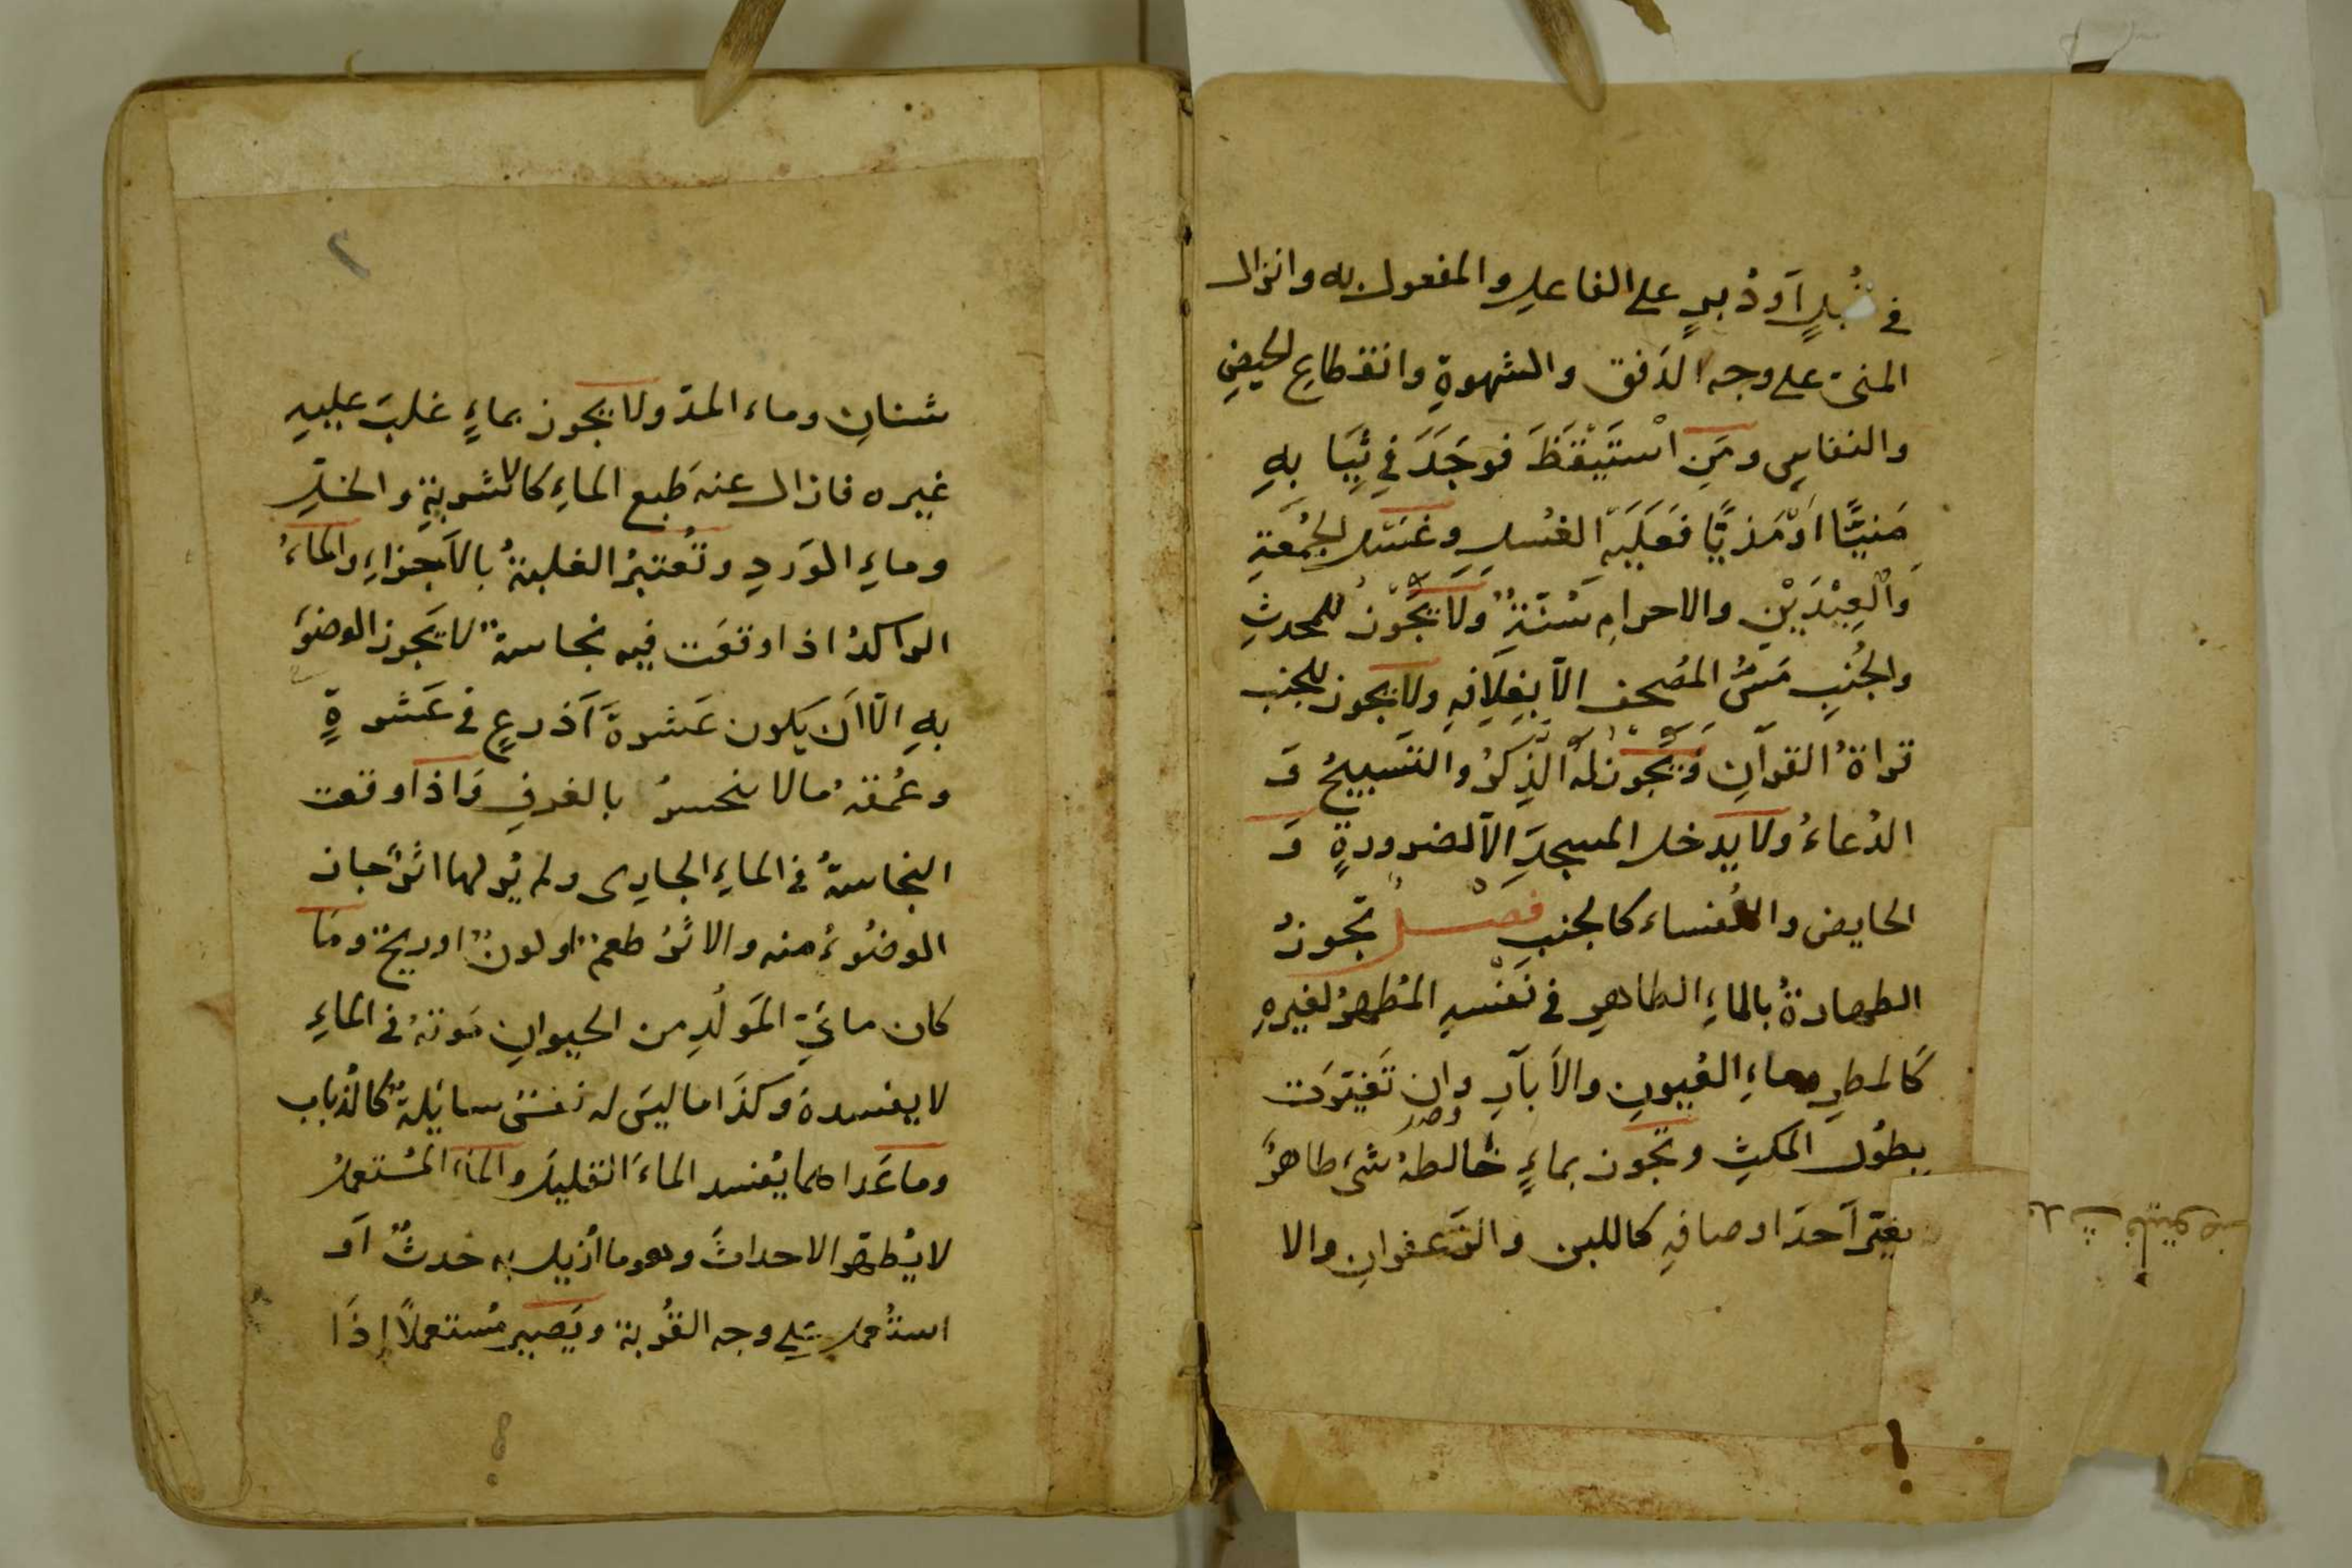 في قُبُلٍ اَو دُبرٍ على الفاعلِ والمفعول به وانزال
المنىّ على وجه الدَفق والشهوةِ وانقطاعِ الحيضِ
والنفاسِ ومَنِ اسْتَيْقَظَ فوَجَدَ في ثِيَا بهِ
مَنيًّا اَوْ مَذيًّا فعَلَيَهِ الغُسلِ وغسل الجُمُعَةِ
وَالْعِيْدَيْنِ والاحرامِ سُنّةٌ وَلا يَجُوْزُ للمحدثِ
والجُنُبِ مَسُّ المُصْحف الّا بغِلافِهِ ولا يجوز للجنب
قراةُ القرآنِ وَيَجُوْزُ لهُ الذِكرُ والتَسبيحُ وَ
الدُعاءُ ولا يدخل المسجدَ الّا لضرورةٍ وَ
الحايض والنُفساء كالجنب فَصْل تجوزُ
الطهارةُ بالماءِ الطاهرِ في نَفْسهِ المُطهرُ لغيرهِ
كَالمطرِ وماءِ العُيونِ والاَبآرِ وان تَغيّرَت
بِطُول المكثِ وتجوز بماءٍ خالطهُ شىءَ طاهرٌ
يغيّر اَحدَ اوصافهِ كاللبن والزعفرانِ والا
شنانِ وماء المدّ ولا يجوز بماءٍ غلبَ عليهِ
غيره فازال عنه طَبع الماءِ كالاشربةِ والخلِّ
وماءِ الوَردِ وتُعتبرُ الغلبةُ بالاَجزاءِ والماءُ
الراكدُ اذا وقعَت فيه نجاسةٌ لا يَجوز الوضوَ
بهِ الّا اَنَ يَكون عَشرةَ اَذرعٍ في عَشرةٍ
وعُمقهُ مالا ينحسرُ بالغرفِ وَاذا وقعت
النجاسةُ في الماءِ الجارِى ولم يُر لهااثرٌ جاز
الوضُوءُ منه والاثَرُ طعمٌ او لونٌ او ريحٌ ومَا
كان مائيّ المَولُدِ من الحيوانِ مَوتهُ في الماءِ
لا يفسده وكذَا ما ليسَ له نفسٌ سائلةٌ كالذُباب
وما عَداهما يُفسد الماءَ القليلَ والمآءُ المُستعملُ
لا يُطهّر الاحداثَ وهو ما اُزيل به حَدثٌ اَو
استُعمل على وجه القُربة ويَصير مُستعملًا إذَا